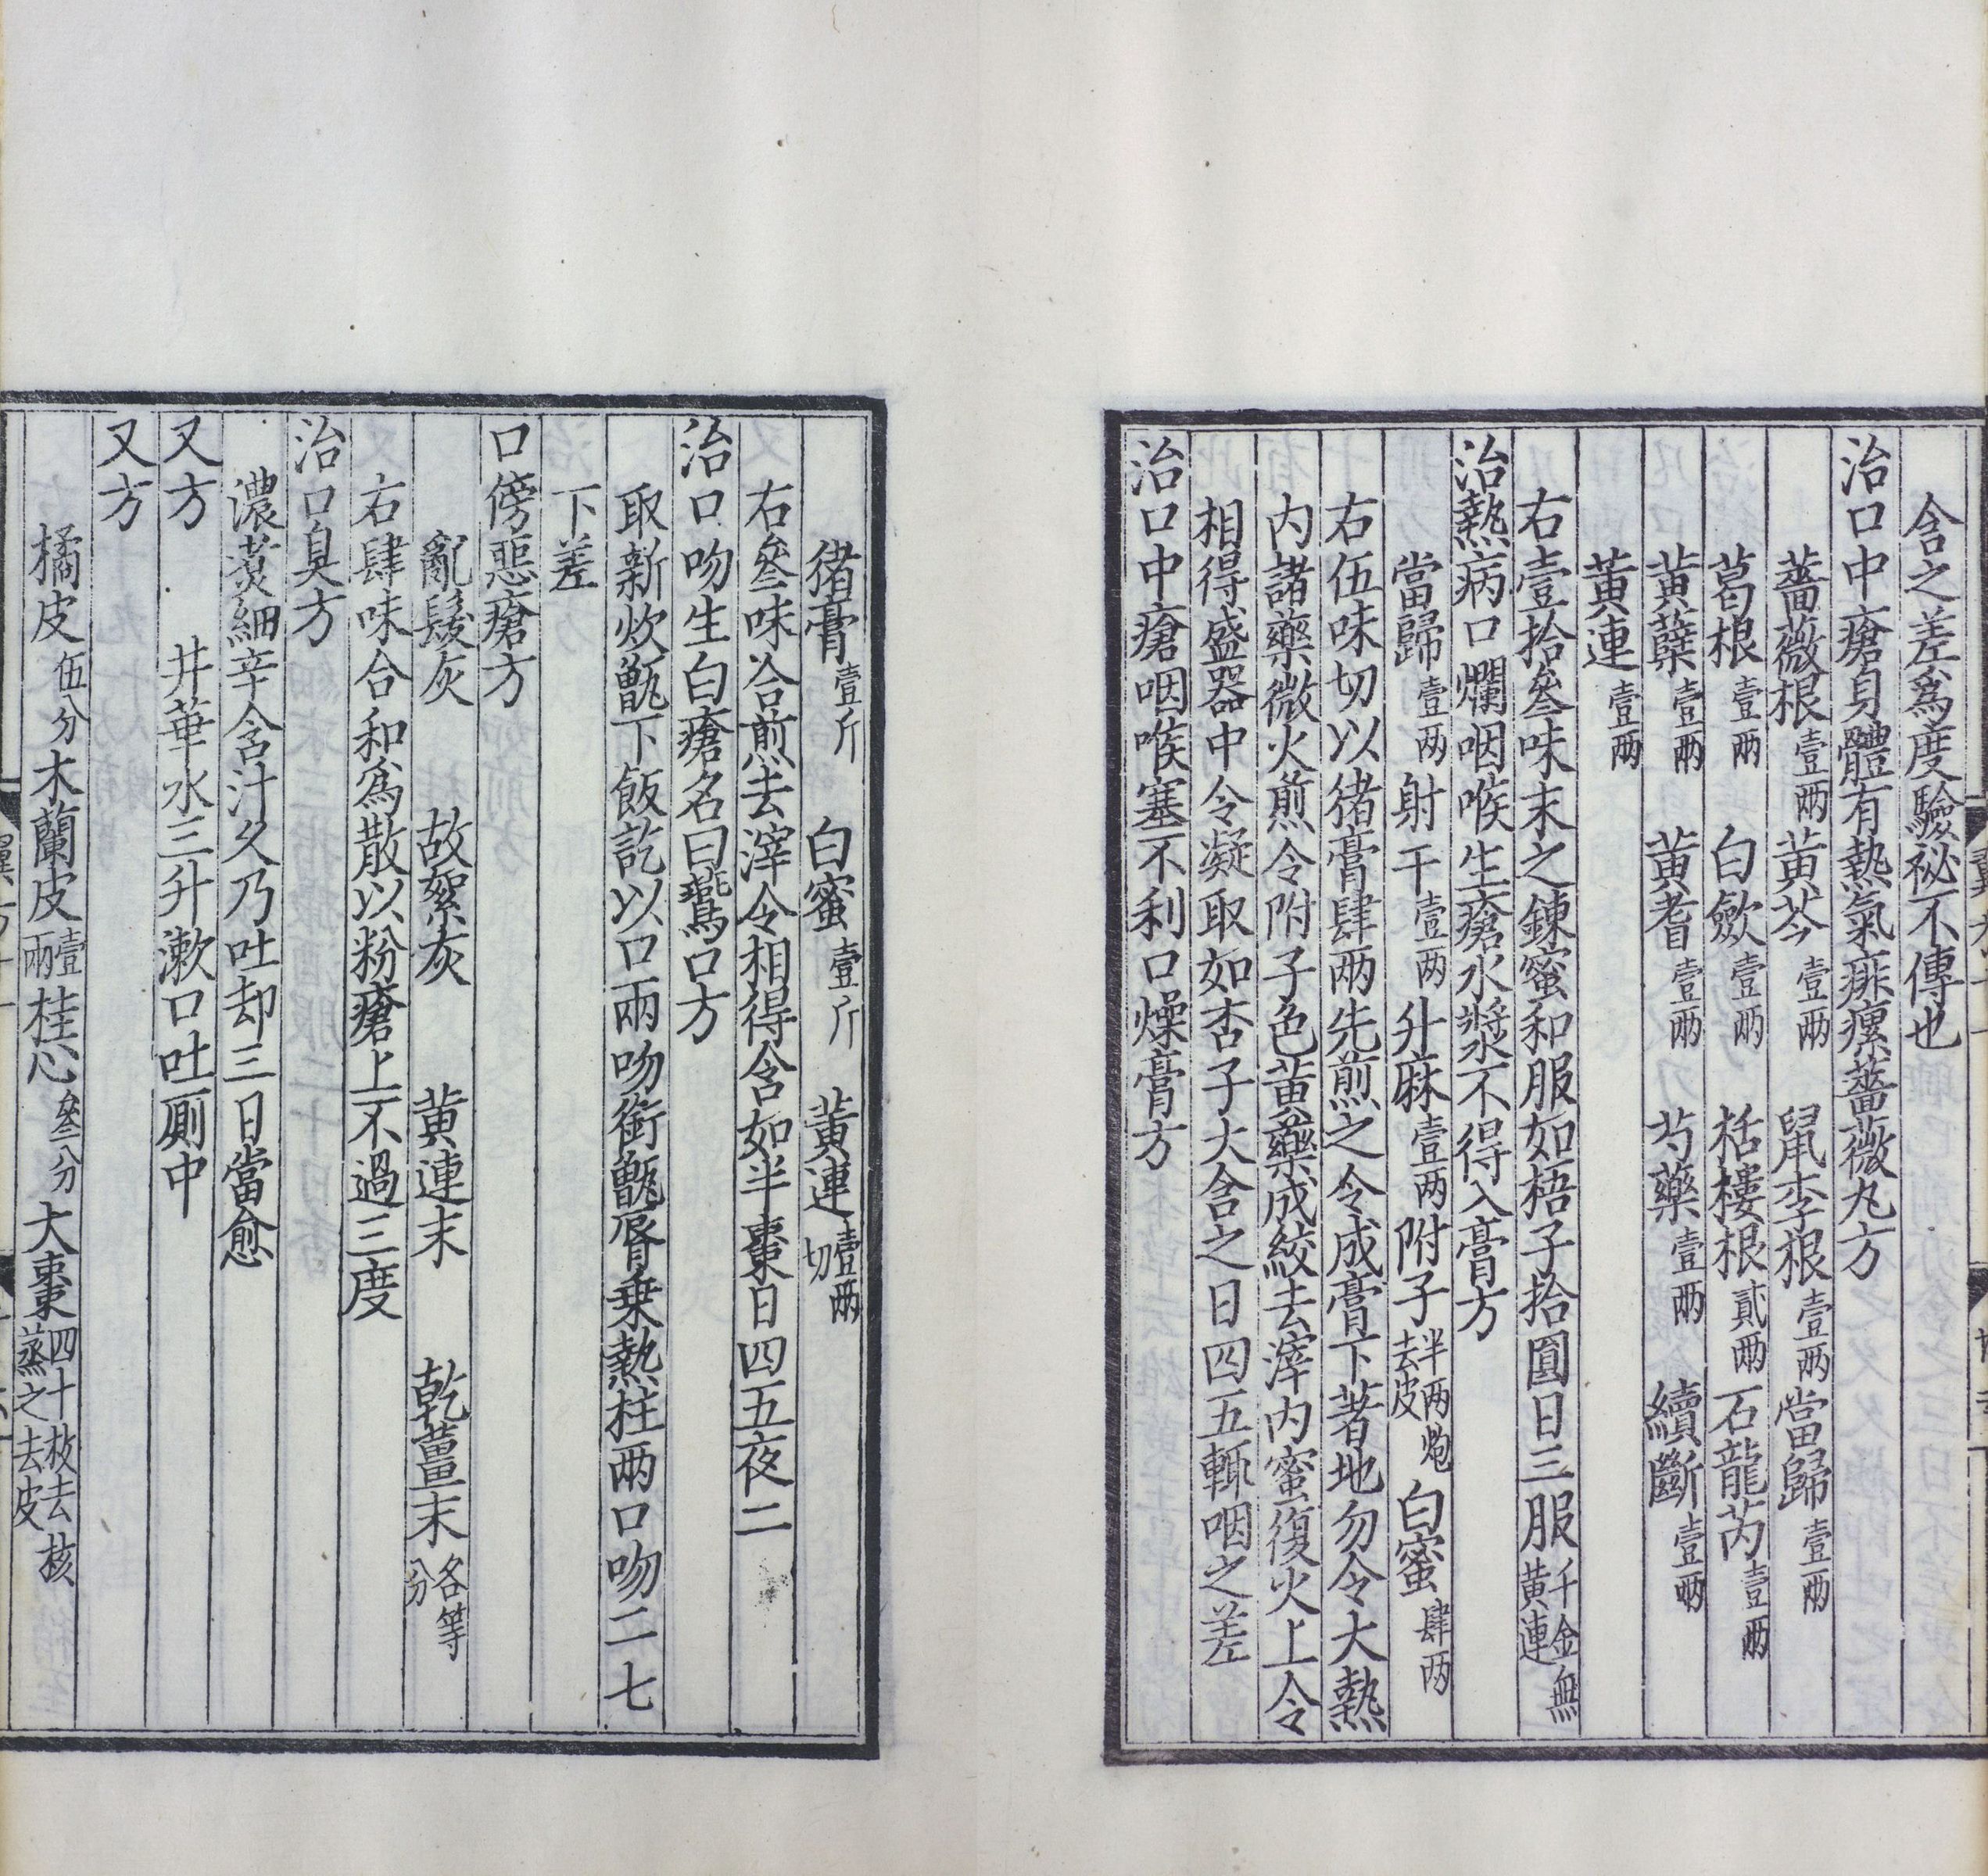 含之差爲度驗祕不傳也
治口中瘡身體有熱氣痱瘰薔薇丸方
薔薇根壹兩黄芩壹兩鼠李根壹兩當歸壹兩
葛根壹兩白歛壹兩栝樓根貳兩石龍芮壹兩
黄蘖壹兩黄耆壹兩芍藥壹兩續斷壹兩
黄連壹兩
右壹拾叄味末之鍊蜜和服如梧子拾圓日三服千金無黄連
治熱病口爛咽喉生瘡水漿不得入膏方
當歸壹兩射干壹兩升麻壹兩附子半兩炮去皮白蜜肆兩
右伍味切以猪膏肆兩先煎之令成膏下著地勿令大熱
内諸藥微火煎令附子色黄藥成絞去滓内蜜復火上令
相得盛器中令凝取如杏子大含之日四五輒咽之差
治口中瘡咽喉塞不利口燥膏方
猪膏壹斤白蜜壹斤黄連壹兩切
右叄味合煎去滓令相得含如半棗日四五夜二
治口吻生白瘡名曰鷰口方
取新炊甑下飯訖以口兩吻銜甑脣乗熱柱兩口吻二七
下差
口傍惡瘡方
亂髮灰故絮灰黄連末乾薑末各等分
右肆味合和爲散以粉瘡上不過三度
治口臭方
濃煑細辛含汁久乃吐却三日當愈
又方井華水三升漱口吐厠中
又方
橘皮伍分木蘭皮壹兩桂心叄分大棗四十枚去核蒸之去皮